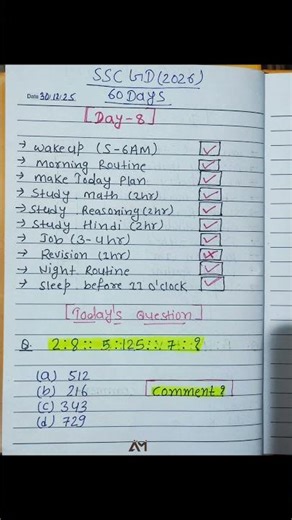 SSC GD (2026)
Date 30:12:25 60 Days
[Day-8]
→ wake up (5-6AM) ✓
→ morning Routine ✓
→ make Today Plan ✓
→ Study math (2hr) ✓
→ Study Reasoning (2hr) ✓
→ Study Hindi (2hr) ✓
→ Job (3-4hr) ✓
→ Revision (1hr) ✗
→ Night Routine ✓
→ Sleep before 11 o'clock ✓
[Today's Question]
Q. 2:8:: 5:125:: 7:?
(a) 512
(b) 216
Comment?
(c) 343
(d) 729
AM